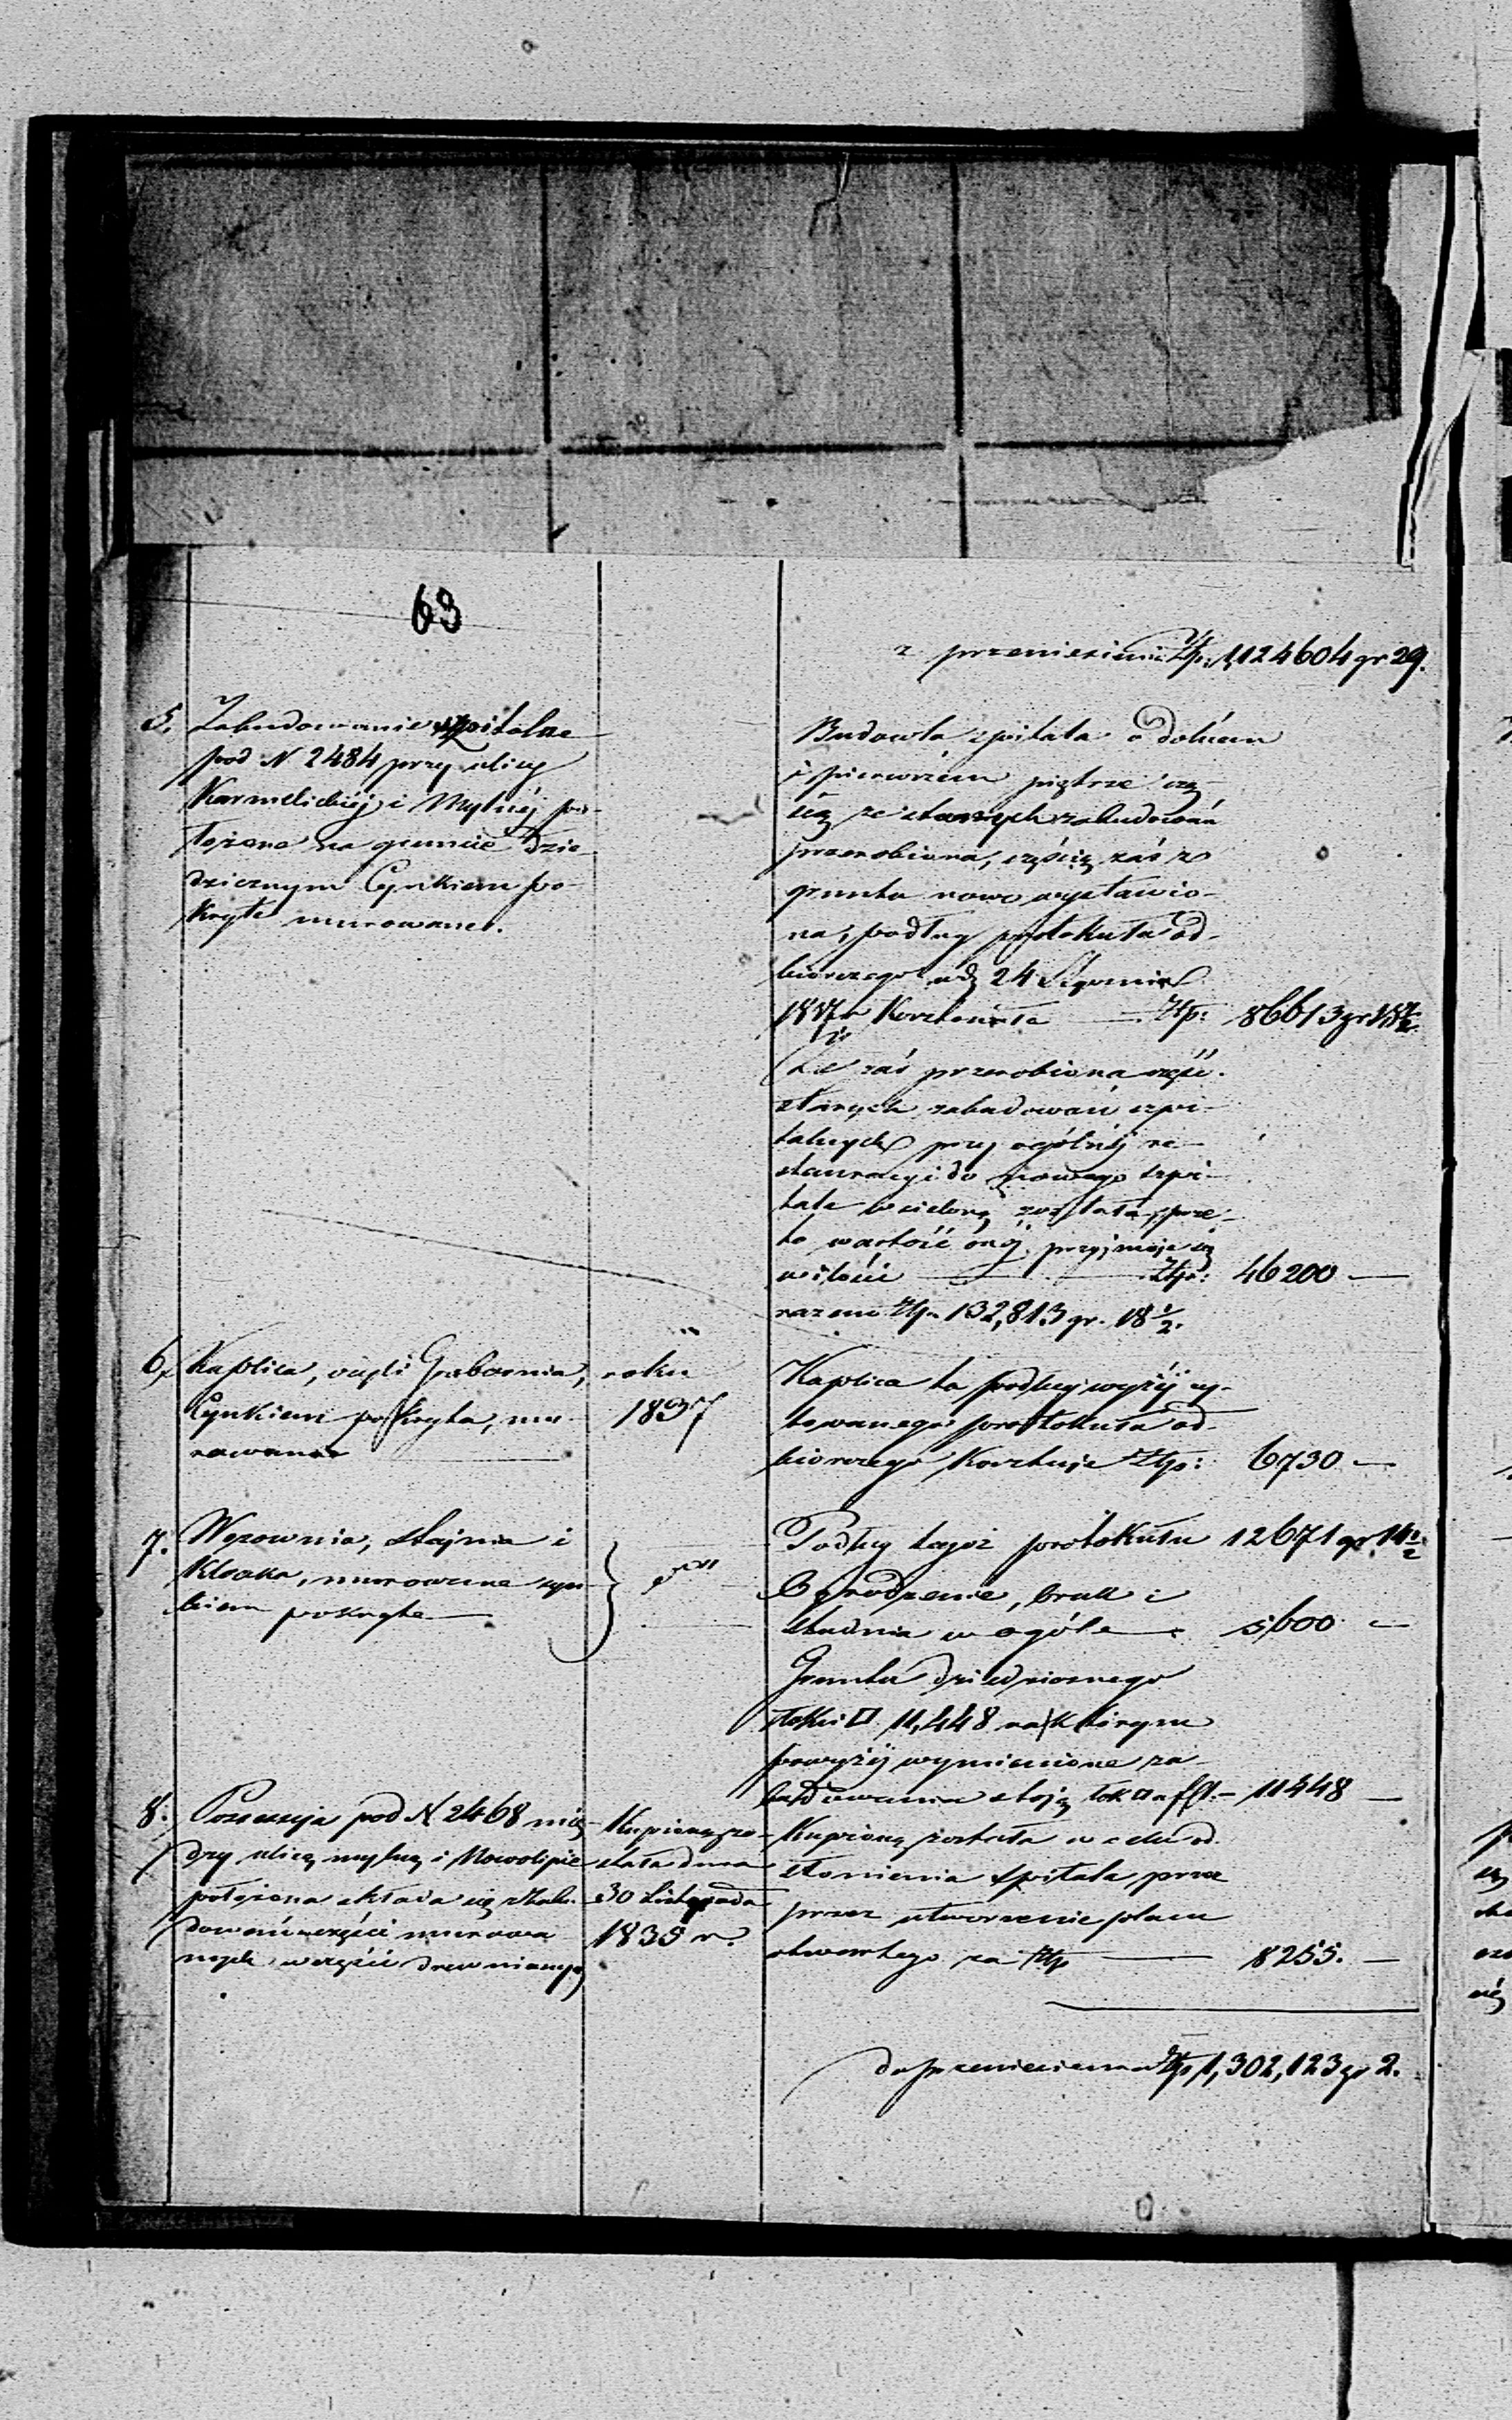 63
z przeniesienia Złp. 1,124604 gr 29.
5. Zabudowanie szpitalne
pod N 2484 przy ulicy
Karmelickiéj i Mylnéj po-
łożone na gruncie dzie-
dzicznym Cynkiem po-
kryte murowane.
Budowla szpitala o dolném
i pierwszém piętrze czę-
ścią ze starych zabudowań
przerobiona, częścią zaś z
gruntu nowo wystawio-
na, podług protokułu od-
biorczego z d. 24 Stycznia
1837 r. kosztowała Złp: 86613 gr 18½
że zaś przerobiona część
starych zabudowań szpi-
talnych przy ogólnéj re-
stauracyi do nowego szpi-
tala wcieloną została, prze-
to wartość onéj przyjmuje się
w ilości Złp: 46200 —
razem Złp. 132,813 gr. 18½.
6. Kaplica, czyli Grabarnia,
Cynkiem pokryta, mu-
rowana
roku
1837
Kaplica ta podług wyżéj cy-
towanego protokułu od-
biorczego kosztuje Złp: 6730 —
7. Wozownia, stajnia i
Kloaka, murowane cyn-
kiem pokryte
Podług tegoż protokułu 12671 gr. 14½
Ogrodzenie, bruk i
studnia w ogóle 5600 —
Gruntu dziedzicznego
łokci □ 11,448 na którym
powyżéj wymienione za-
budowania stoją łok □ a fl 1.— 11448 —
8. Possessyja pod N 2468 mię-
dzy ulicą mylną i Nowolipie
położona składa się z zabu-
dowań w części murowa-
nych, w części drewnianych
Kupioną zo-
stała dnia
30 Listopada
1835 r.
Kupioną została w celu od-
słonienia szpitala przez
przez utworzenie placu
otwartego za Złp 8255. —
do przeniesienia Złp 1,302,123 gr 2.